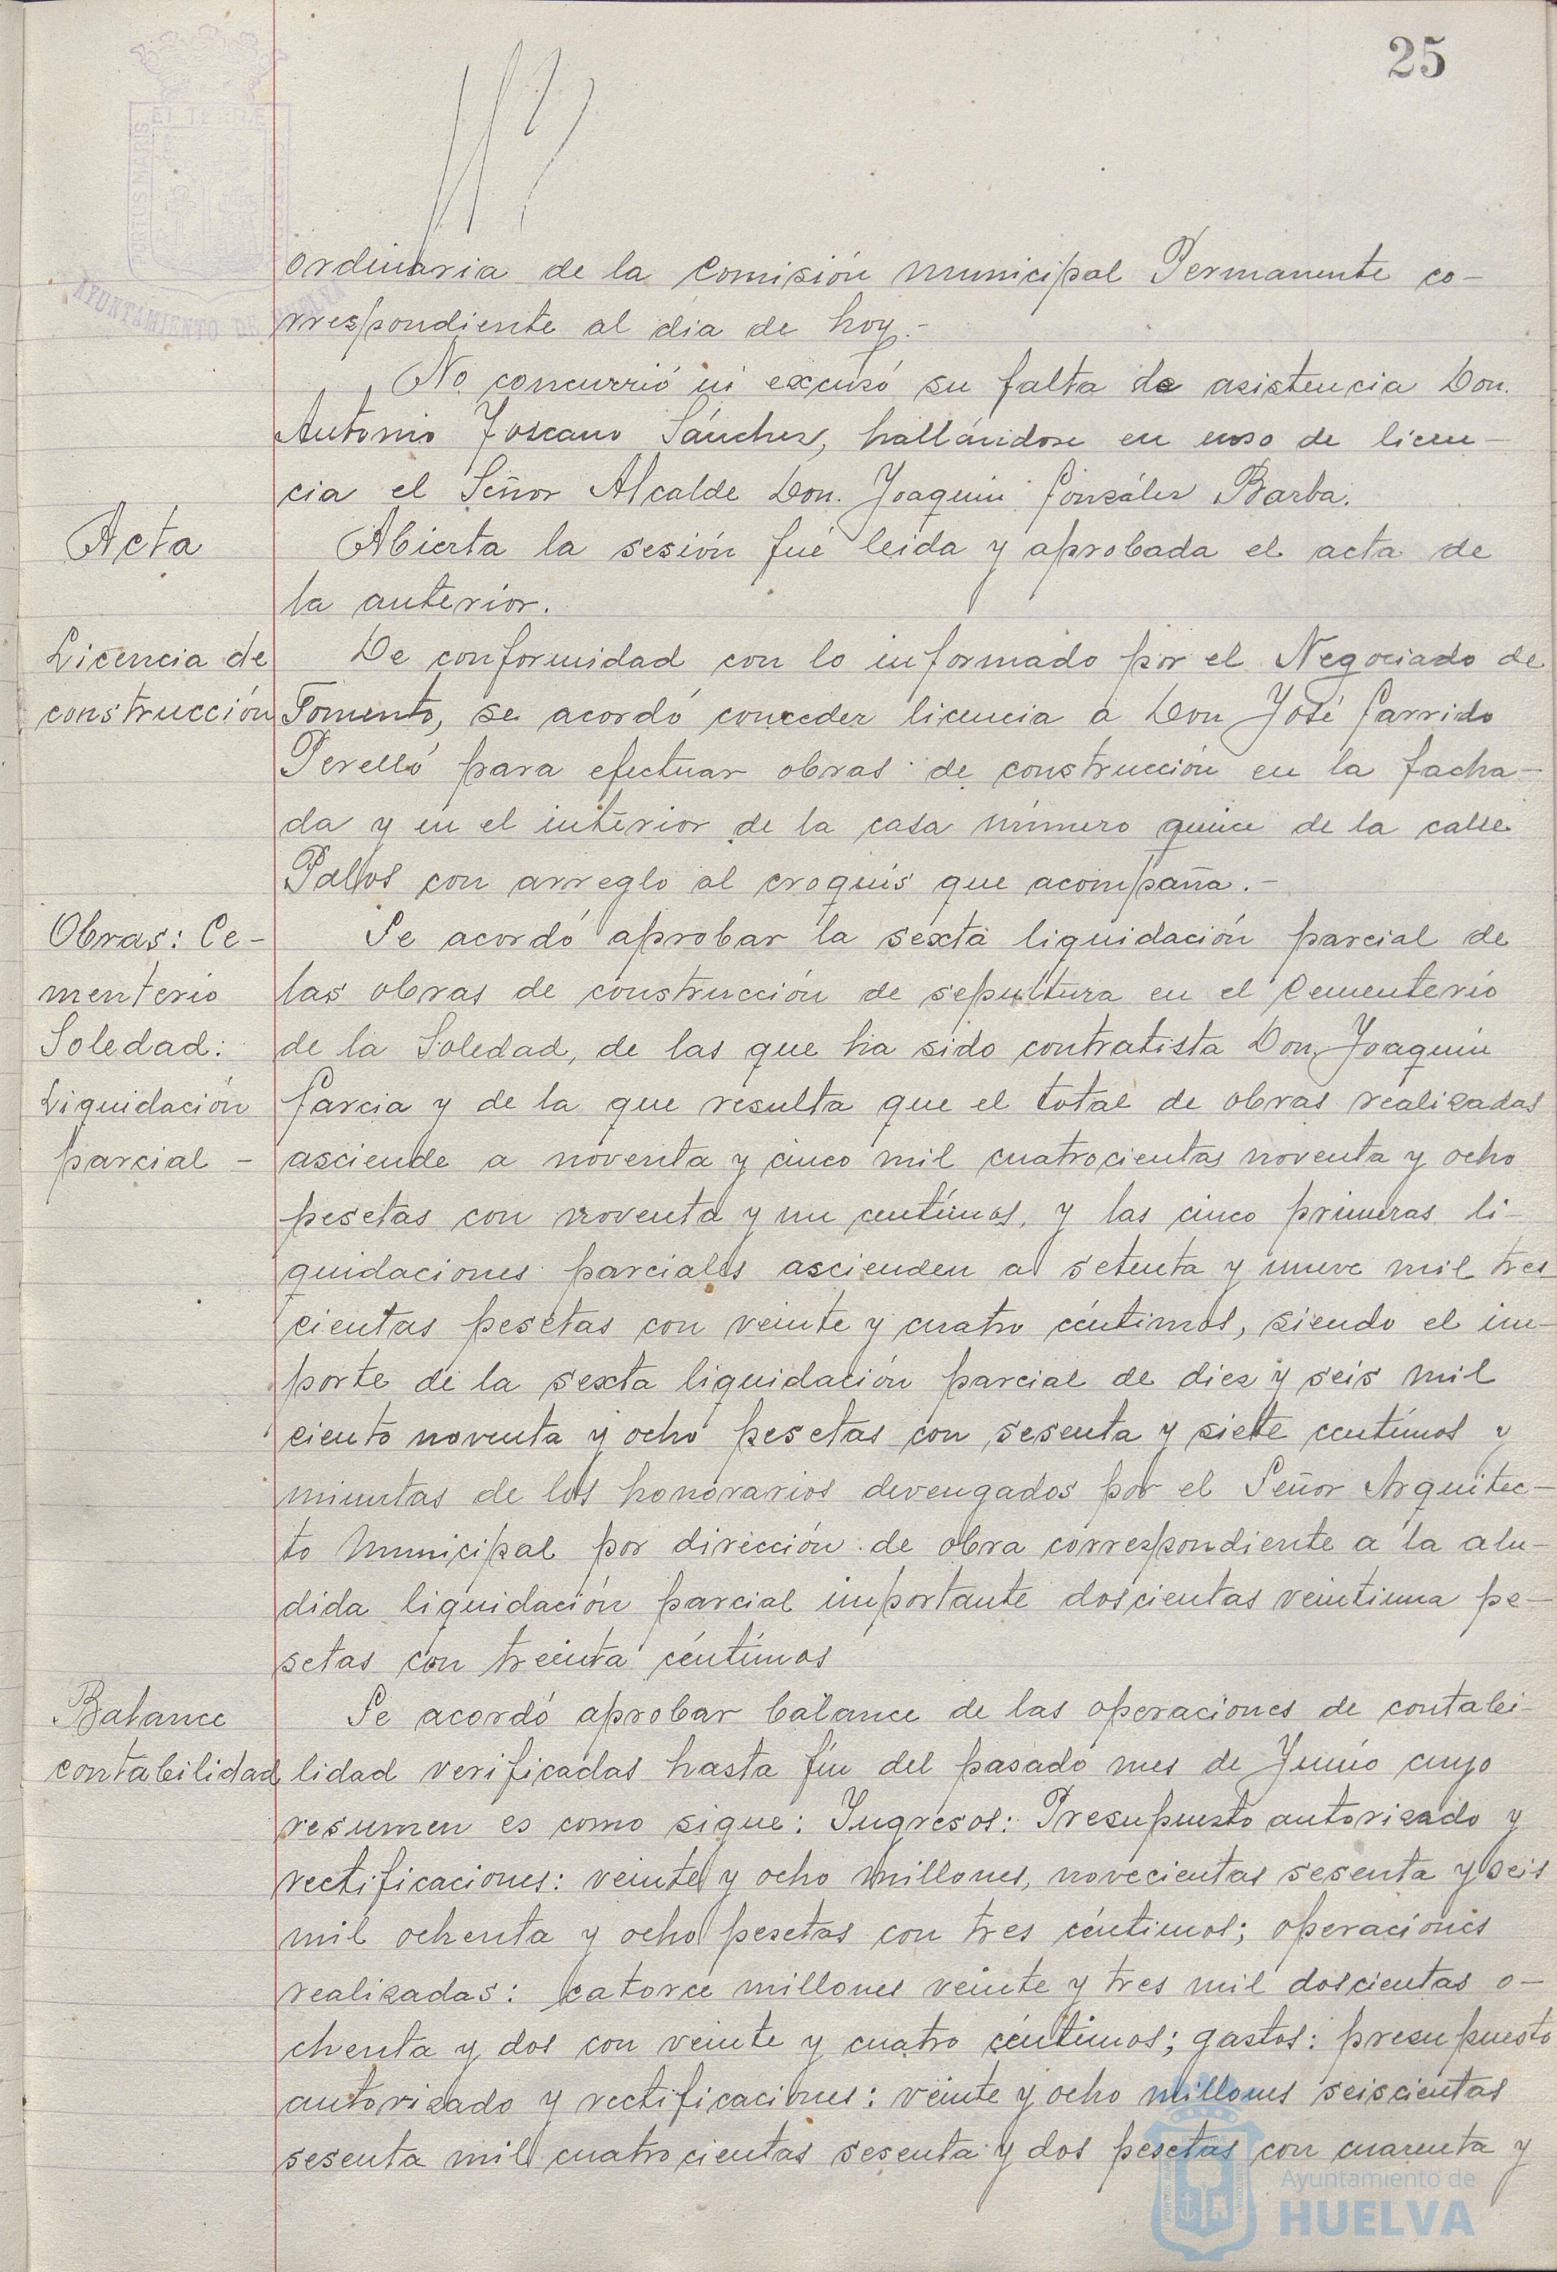 25
PORTUS MARIS
ET TERRÆ
AYUNTAMIENTO DE HUELVA
ordinaria de la Comisión Municipal Permanente co-
rrespondiente al dia de hoy.-
No concurrió ni excusó su falta de asistencia Don.
Antonio Toscano Sánchez, hallándose en uso de licen-
cia el Señor Alcalde Don. Joaquin González Barba.
Acta
Abierta la sesión fué leida y aprobada el acta de
la anterior.
Licencia de
construcción
De conformidad con lo informado por el Negociado de
Fomento, se acordó conceder licencia a Don José Garrido
Perelló para efectuar obras de construcción en la facha-
da y en el interior de la casa número quince de la calle
Palos con arreglo al croquis que acompaña.-
Obras: Ce-
menterio
Soledad:
Liquidación
parcial -
Se acordó aprobar la sexta liquidación parcial de
las obras de construcción de sepultura en el Cementerio
de la Soledad, de las que ha sido contratista Don Joaquin
Garcia y de la que resulta que el total de obras realizadas
asciende a noventa y cinco mil cuatrocientas noventa y ocho
pesetas con noventa y un centimos, y las cinco primeras li-
quidaciones parciales ascienden a setenta y nueve mil tres
cientas pesetas con veinte y cuatro céntimos, siendo el im-
porte de la sexta liquidación parcial de diez y seis mil
ciento noventa y ocho pesetas con sesenta y siete centimos y
minutas de los honorarios devengados por el Señor Arquitec-
to Municipal por dirección de obra correspondiente a la alu-
dida liquidación parcial importante doscientas veintiuna pe-
setas con treinta céntimos
Balance
contabilidad
Se acordó aprobar balance de las operaciones de contabi-
lidad verificadas hasta fin del pasado mes de Junio cuyo
resumen es como sigue: Ingresos: Presupuesto autorizado y
rectificaciones: veinte y ocho millones, novecientas sesenta y seis
mil ochenta y ocho pesetas con tres céntimos; operaciones
realizadas: catorce millones veinte y tres mil doscientas o-
chenta y dos con veinte y cuatro céntimos; gastos: presupuesto
autorizado y rectificaciones: veinte y ocho millones seiscientas
sesenta mil cuatrocientas sesenta y dos pesetas con cuarenta y
Ayuntamiento de
HUELVA